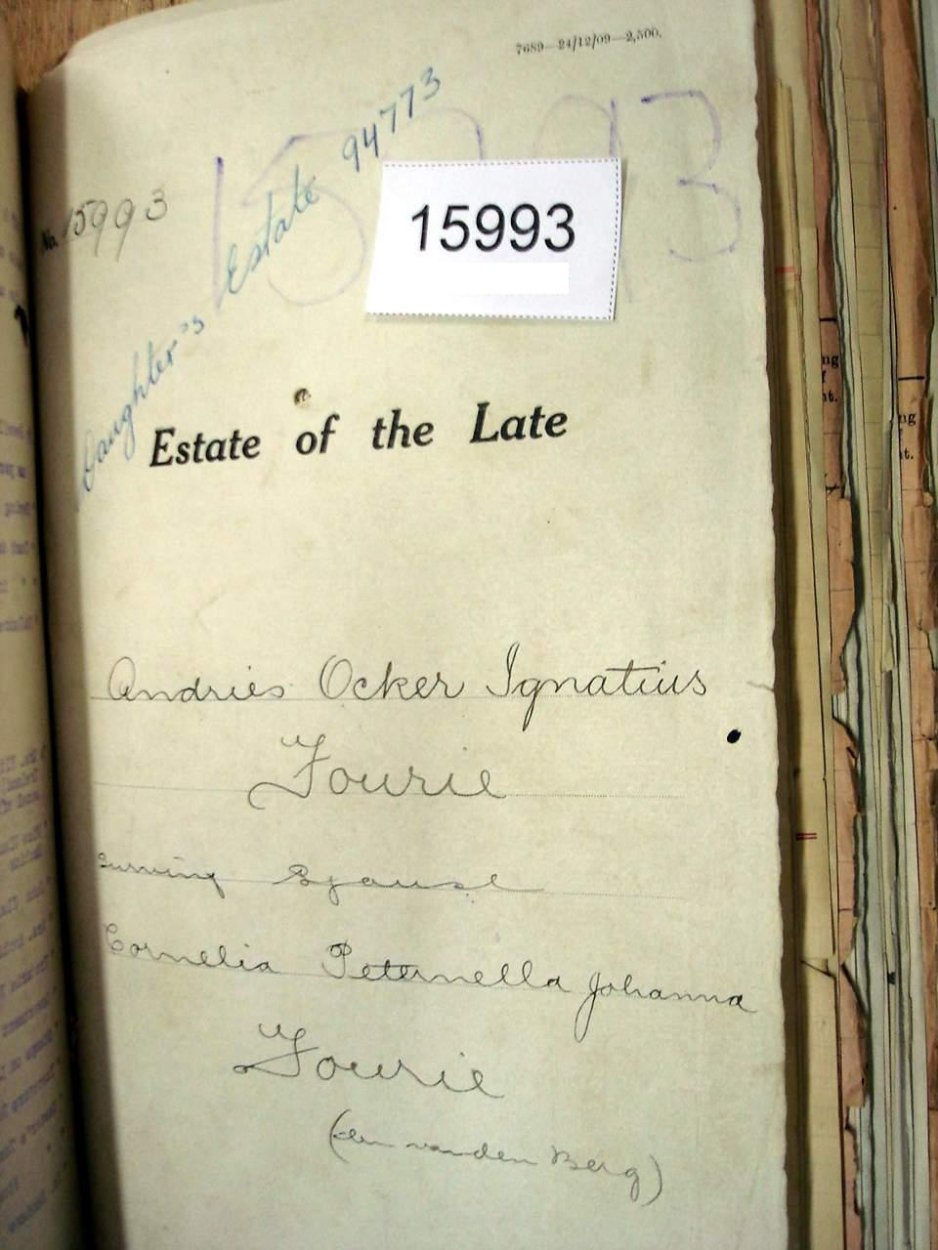 7689—24/12/09—2,500.
Daughter's Estate 94773
No. 15993
15993
15993
Estate of the Late
Andries Ocker Ignatius
Fourie
Surviving Spouse
Cornelia Peternella Johanna
Fourie
(van den Berg)
ng
f
nt.
ng
t.